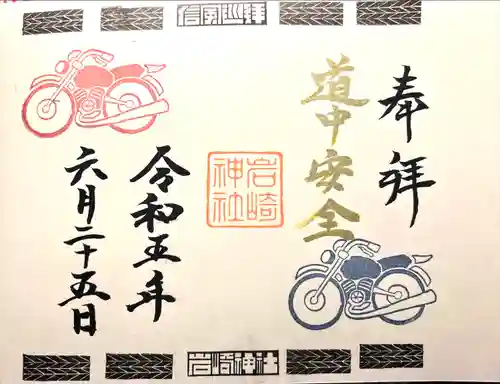 信室巡拝
奉拝
道中安全
岩崎
神社
令和五年
六月二十五日
岩崎神社